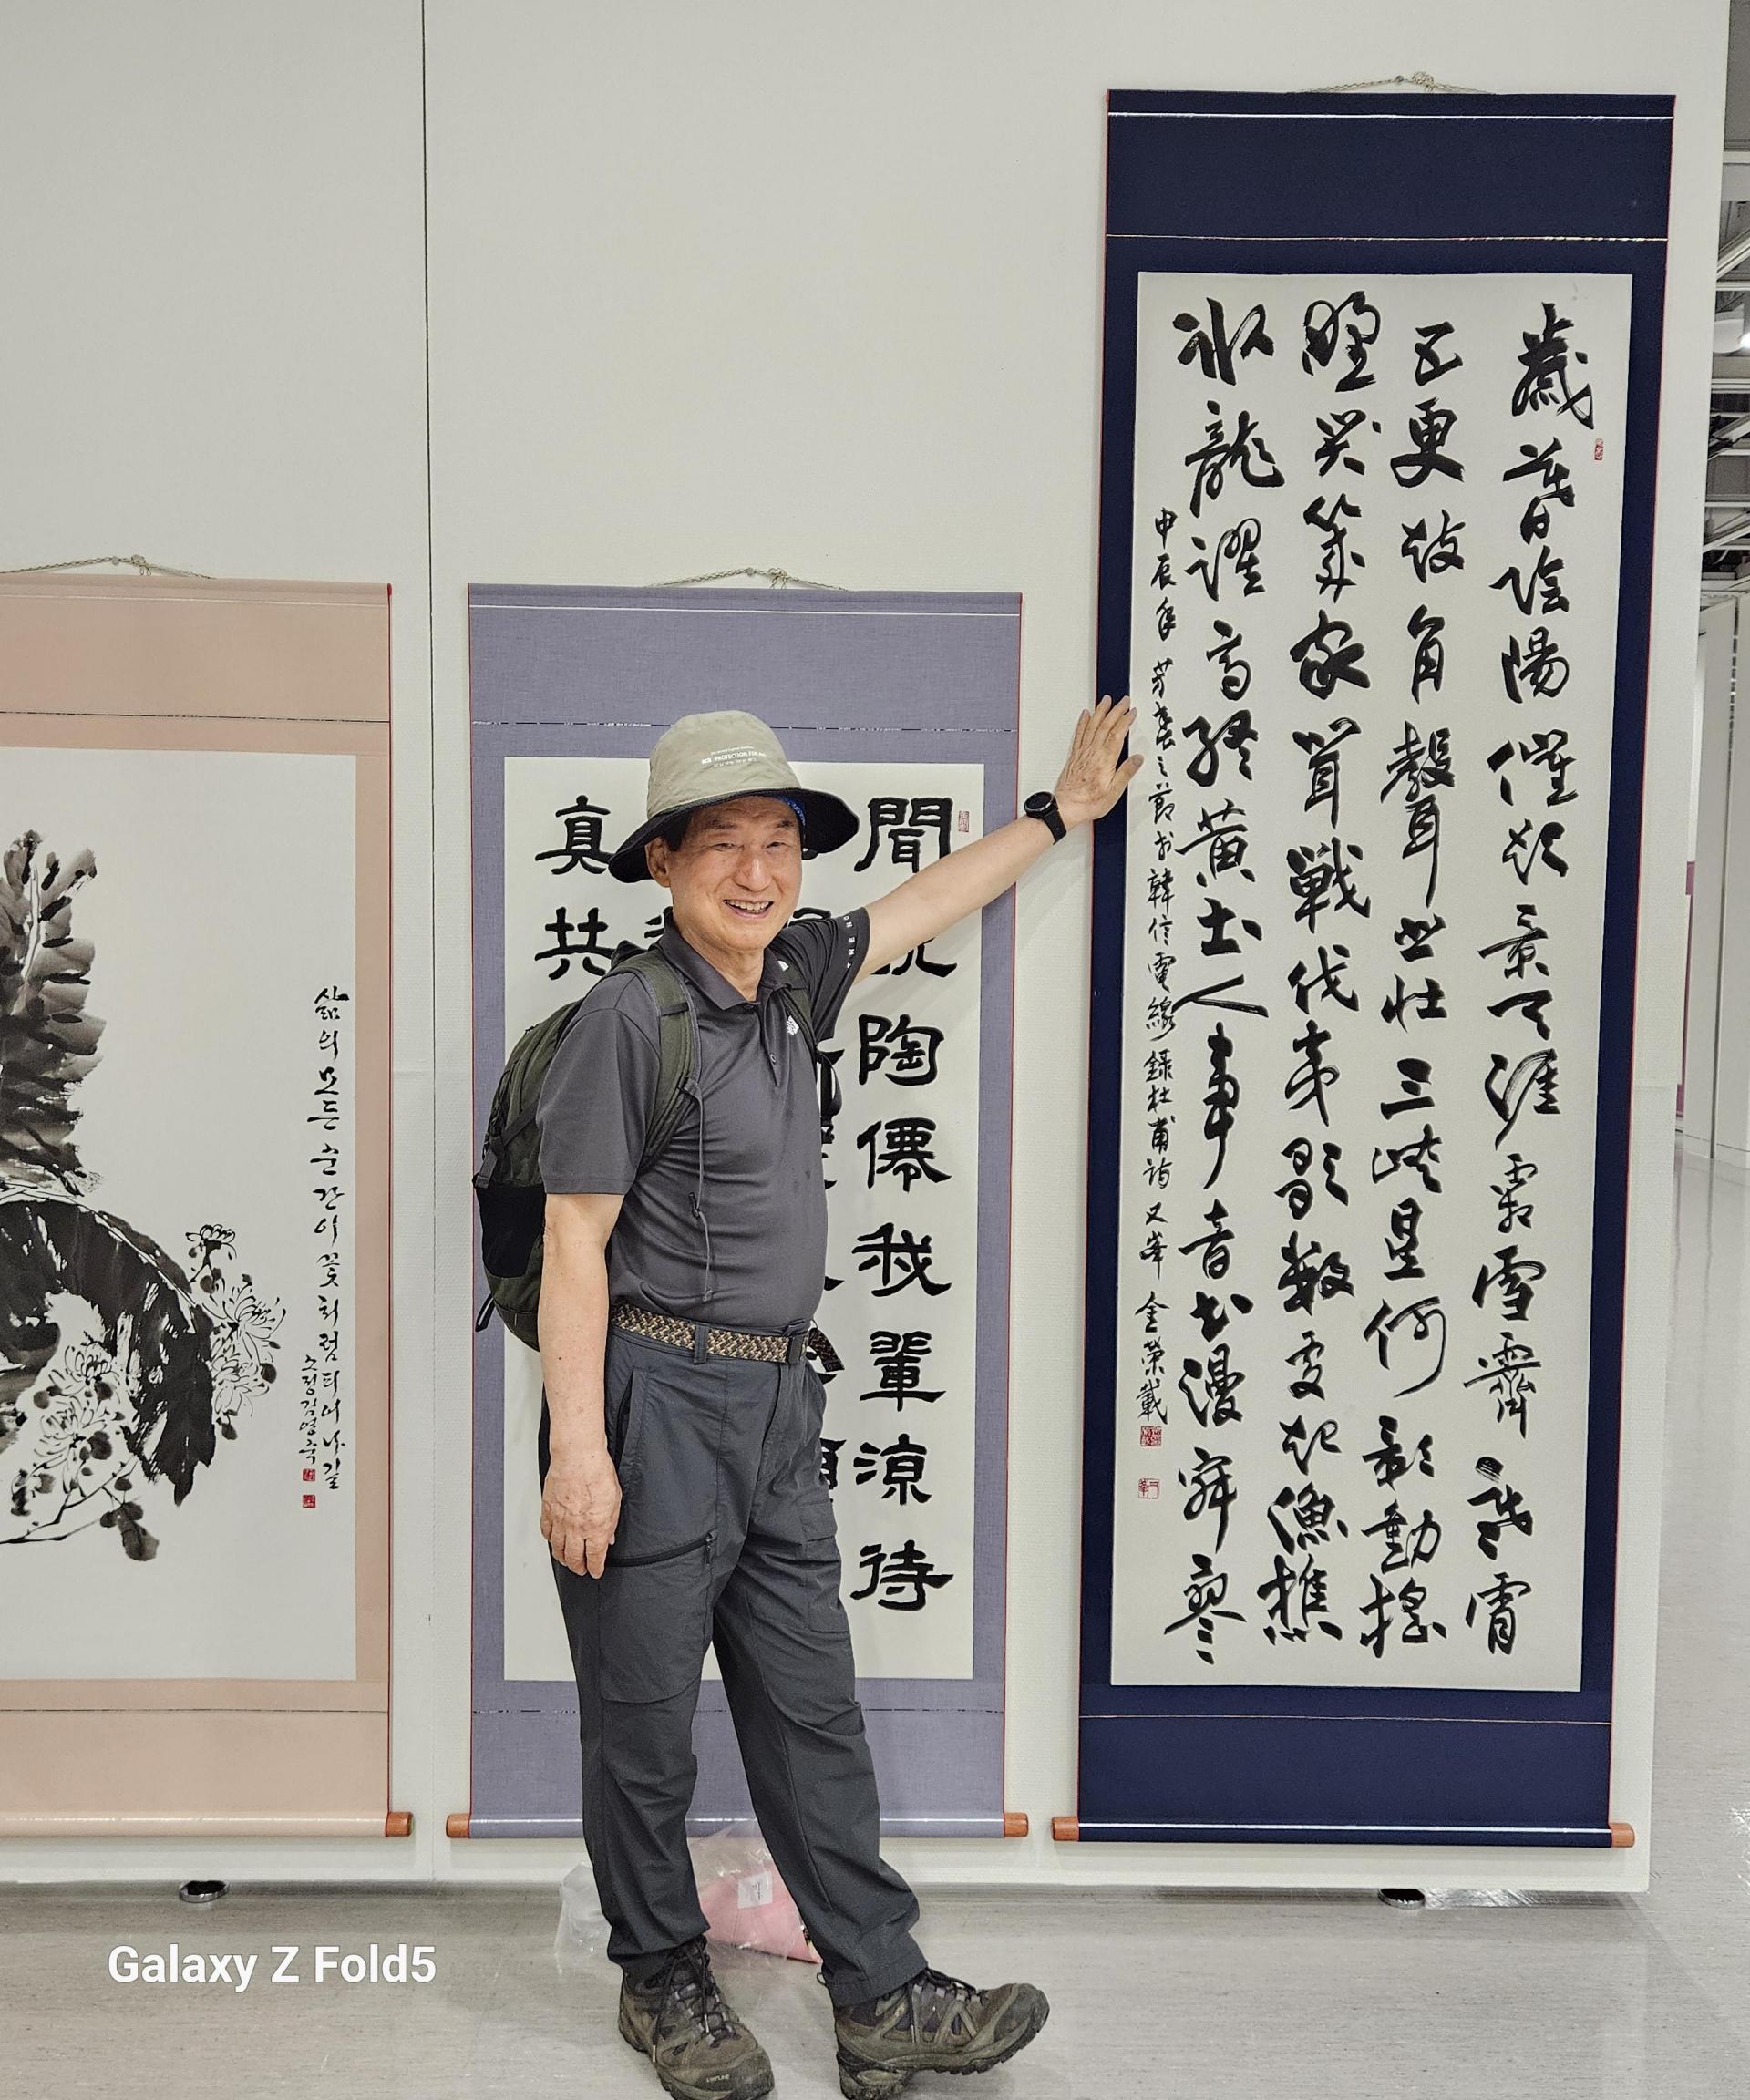 歲暮陰陽催短景天涯霜雪霽寒宵
五更鼓角聲悲壯三峽星河影動搖
野哭幾家聞戰伐夷歌數處起漁樵
臥龍躍馬終黃土人事音書漫寂寥
甲辰年 芳春之節於韓信電緣 錄杜甫詩 又峯 金榮載
聞說陶儒我輩涼待
真共
삶의 모든 순간이 꽃처럼 피어나길
소정 김영숙
PROTECTION FOR
Galaxy Z Fold5